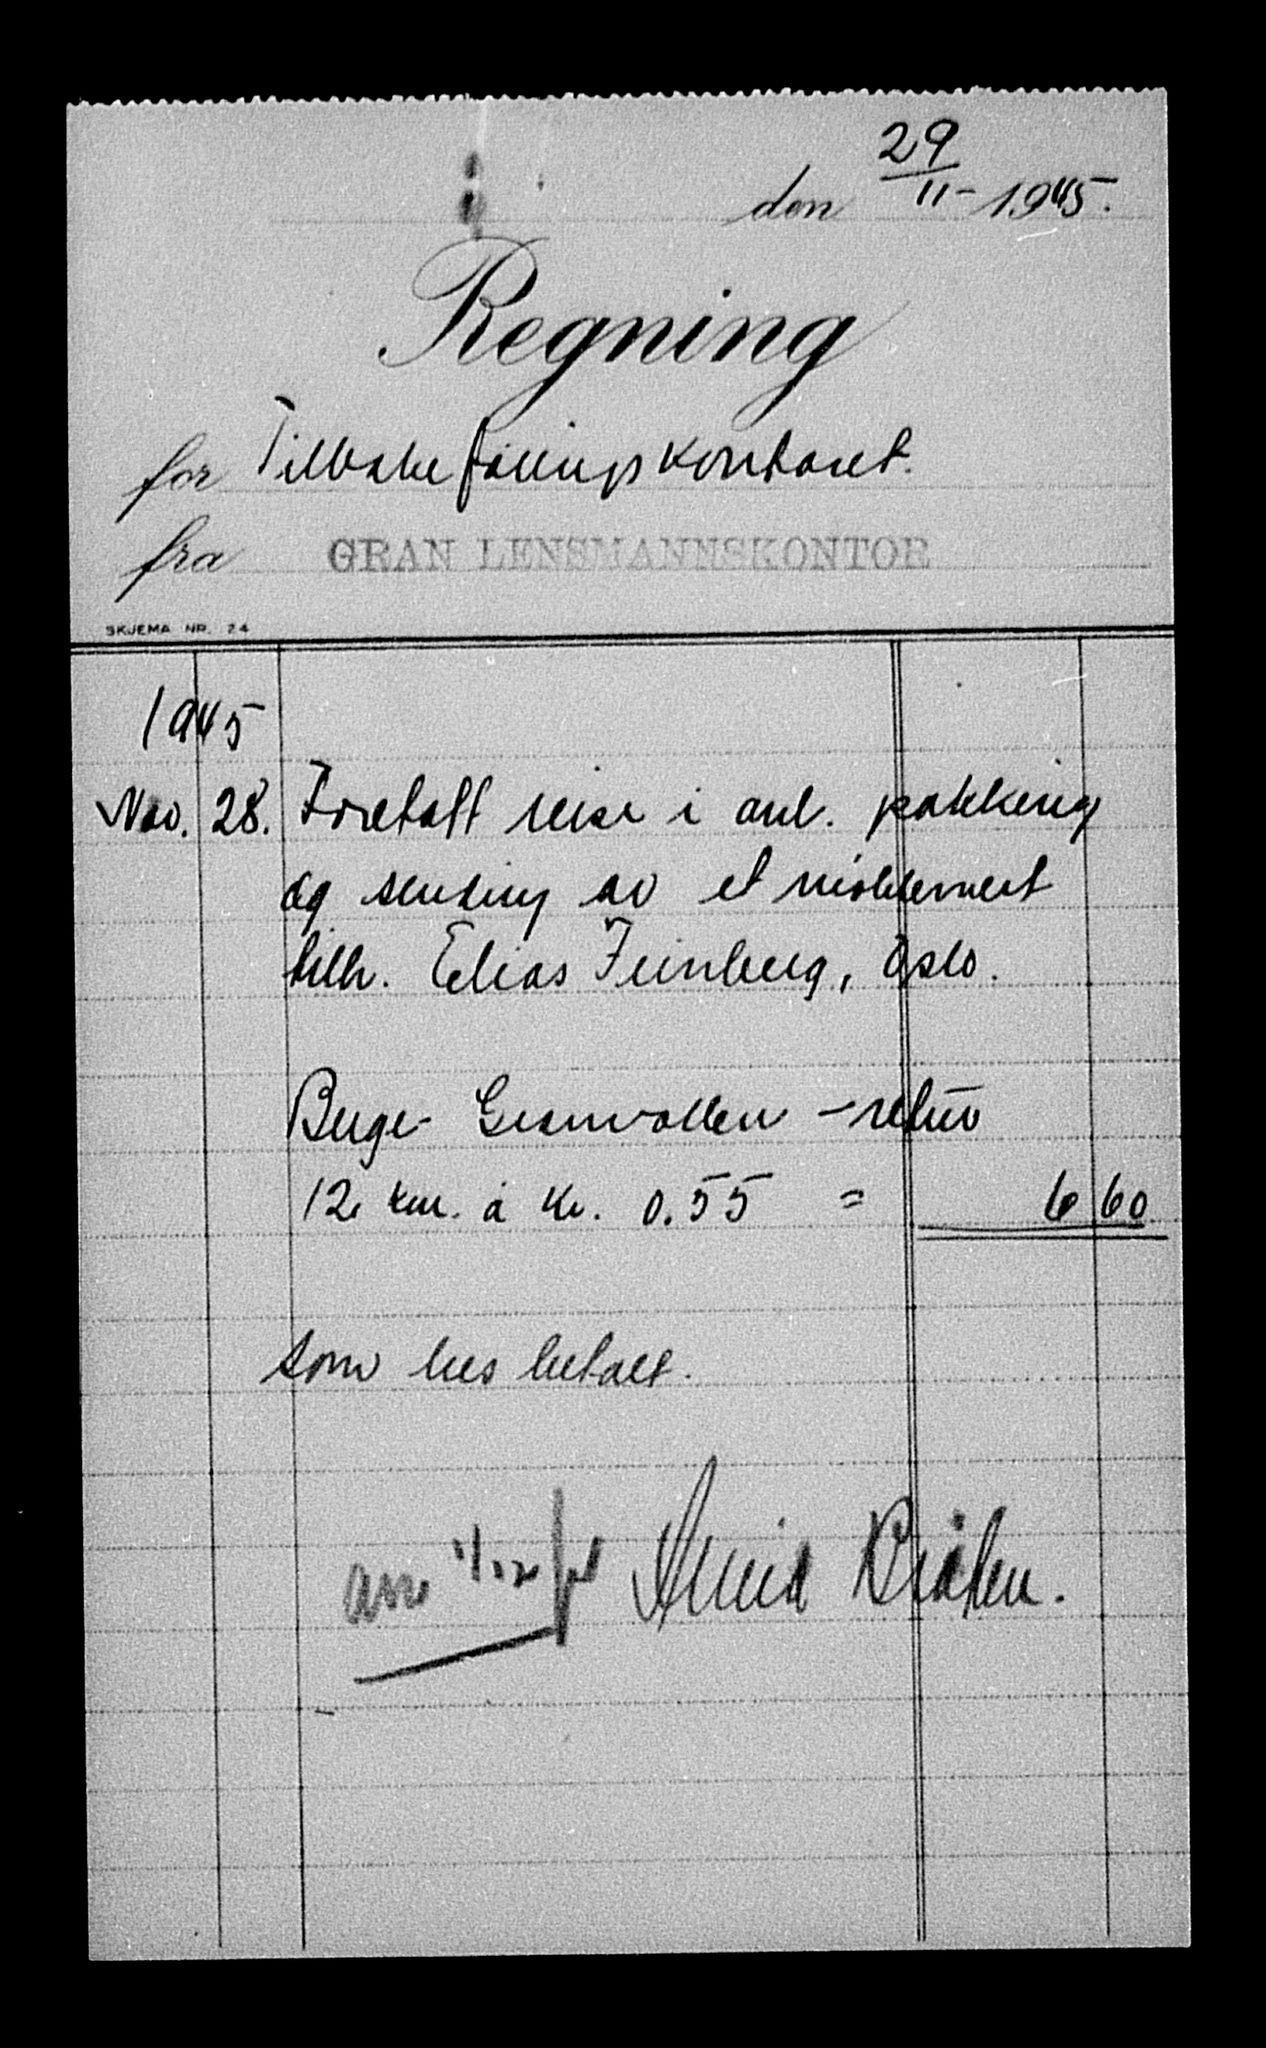 den 29/11-1945.
Regning
for Tilbakeføringskontoret.
fra GRAN LENSMANNSKONTOR
SKJEMA NR. 24
1945
Nov. 28. Foretatt reise i anl. pakking
og sending av et møblement
tilh. Elias Feinberg, Oslo.
Berge- Granvollen - retur
12 km. à kr. 0.55 = 6 60
som bes betalt.
1/12